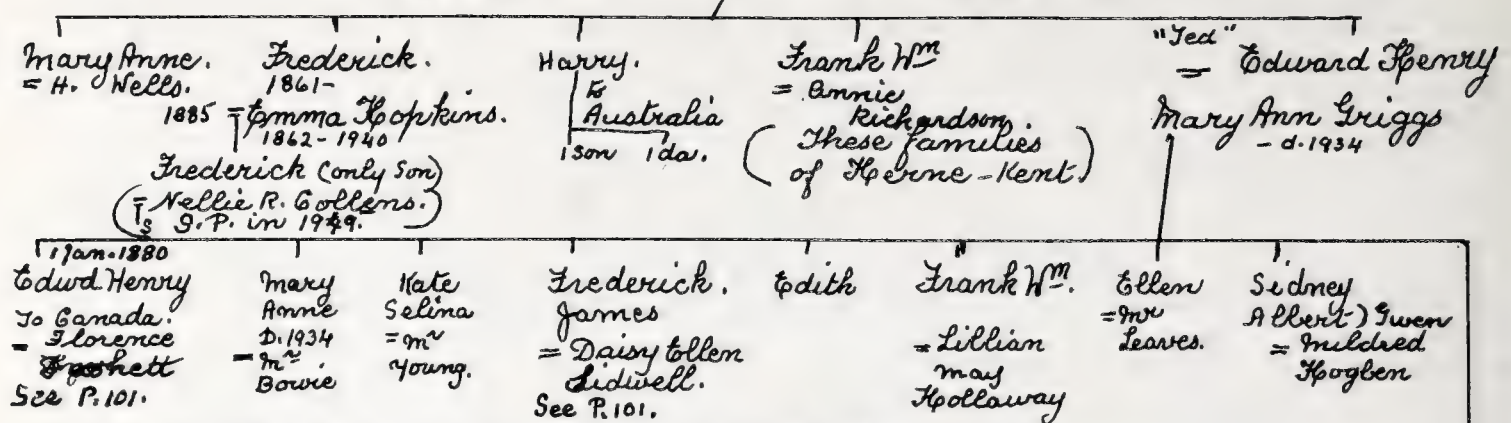 Mary Anne.
= H. Wells.
Frederick.
1861-
1885 = Emma Hopkins.
1862-1940
Frederick (only son)
(= Nellie R. Collens.)
S.P. in 1949.
Harry.
to
Australia
1 son 1 da.
Frank Wm
= Annie
Richardson.
(These families
of Herne - Kent.)
"Ted"
= Edward Henry
Mary Ann Griggs
- d. 1934
1 Jan. 1880
Edwd Henry
To Canada.
= Florence
See P. 101.
Mary
Anne
D. 1934
= Mr
Bowie
Kate
Selina
= Mr
Young.
Frederick.
James
= Daisy Ellen
Sidwell.
See P. 101.
Edith
Frank Wm.
= Lillian
May
Hollaway
Ellen
= Mr
Leaves.
Sidney
Albert) Gwen
= Mildred
Hogben